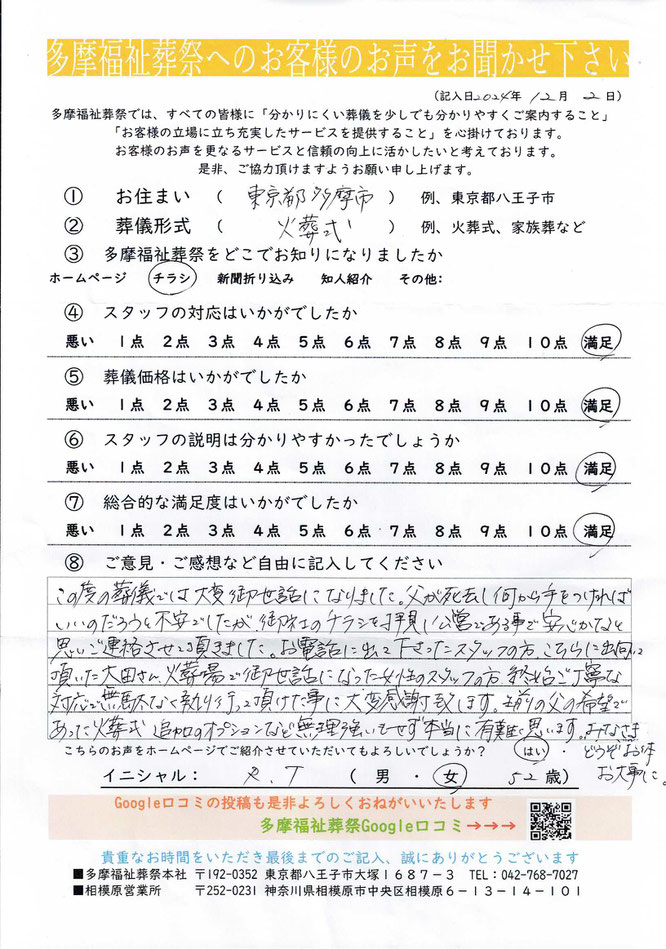 多摩福祉葬祭へのお客様のお声をお聞かせ下さい
(記入日2024年 12月 2日)
多摩福祉葬祭では、すべての皆様に「分かりにくい葬儀を少しでも分かりやすくご案内すること」
「お客様の立場に立ち充実したサービスを提供すること」を心掛けております。
お客様のお声を更なるサービスと信頼の向上に活かしたいと考えております。
是非、ご協力頂けますようお願い申し上げます。
① お住まい ( 東京都多摩市 ) 例、東京都八王子市
② 葬儀形式 ( 火葬式 ) 例、火葬式、家族葬など
③ 多摩福祉葬祭をどこでお知りになりましたか
ホームページ チラシ 新聞折り込み 知人紹介 その他:
④ スタッフの対応はいかがでしたか
悪い 1点 2点 3点 4点 5点 6点 7点 8点 9点 10点 満足
⑤ 葬儀価格はいかがでしたか
悪い 1点 2点 3点 4点 5点 6点 7点 8点 9点 10点 満足
⑥ スタッフの説明は分かりやすかったでしょうか
悪い 1点 2点 3点 4点 5点 6点 7点 8点 9点 10点 満足
⑦ 総合的な満足度はいかがでしたか
悪い 1点 2点 3点 4点 5点 6点 7点 8点 9点 10点 満足
⑧ ご意見・ご感想など自由に記入してください
この度の葬儀では大変御世話になりました。父が死去し何から手をつければ
いいのだろうと不安でしたが御社のチラシを拝見し公営である事で安心かなと
思いご連絡させて頂きました。お電話に出て下さったスタッフの方、こちらに出向いて
頂いた太田さん、火葬場で御世話になった女性のスタッフの方、終始ご丁寧な
対応で無駄なく執り行って頂けた事に大変感謝致します。生前の父の希望で
あった火葬式 追加のオプションなど無理強いもせず本当に有難く思います。みなさま
どうぞお体
お大事に。
こちらのお声をホームページでご紹介させていただいてもよろしいでしょうか? はい・
イニシャル: R.T ( 男・女 52歳)
Google口コミの投稿も是非よろしくおねがいいたします
多摩福祉葬祭Google口コミ→→→
貴重なお時間をいただき最後までのご記入、誠にありがとうございます
■多摩福祉葬祭本社 〒192-0352 東京都八王子市大塚1687-3 TEL:042-768-7027
■相模原営業所 〒252-0231 神奈川県相模原市中央区相模原6-13-14-101